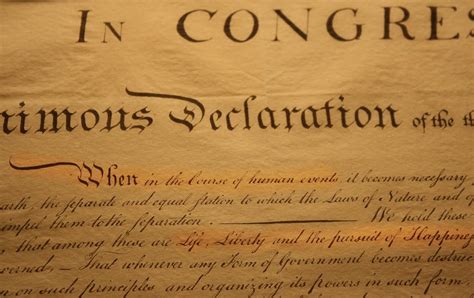 In CONGRES
nimous Declaration of the th
When in the Course of human events, it becomes necessary
arth, the separate and equal station to which the Laws of Nature and of
impel them to the separation. We hold these
s, that among these are Life, Liberty and the pursuit of Happines
verned, — That whenever any Form of Government becomes destruc
on on such principles and organizing its powers in such form